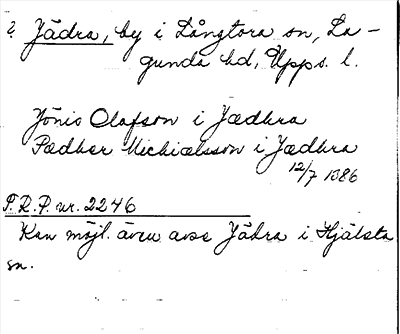 ? Jädra, by i Långtora sn, La-
gunda hd, Upps. l.
Jönis Olafson i Jædhra
Pædher Michiælsson i Jædhra
12/7 1386
S.R.P. nr. 2246
Kan möjl. även avse Jädra i Hjälsta
sn.